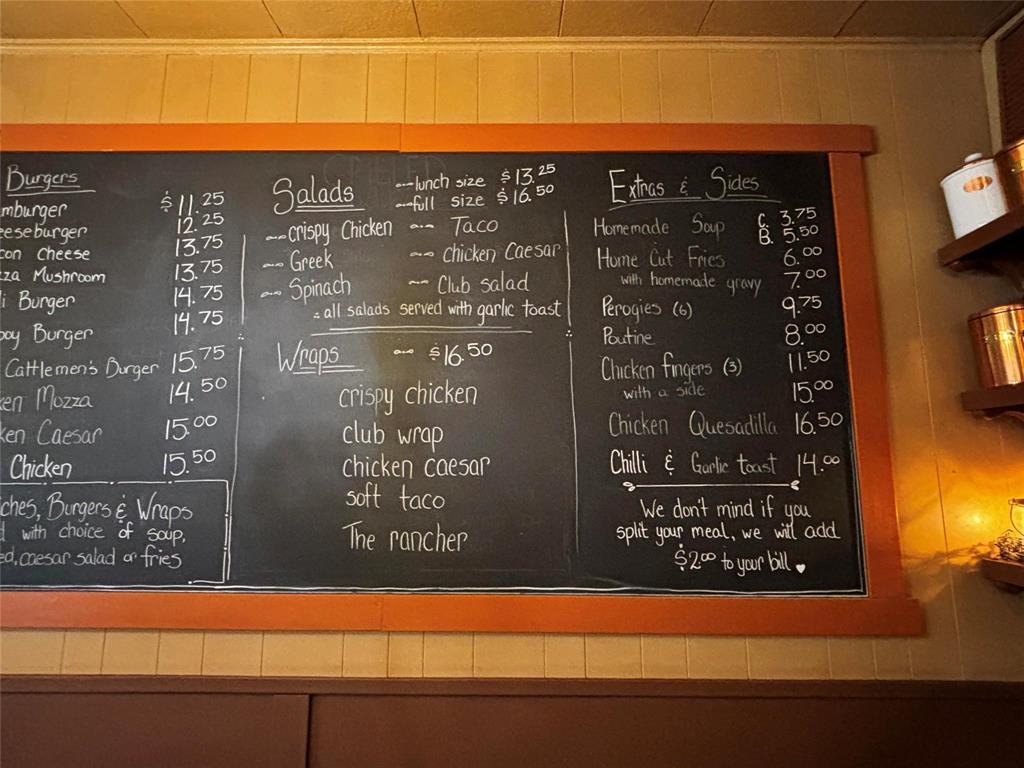 Burgers
mburger $11.25
eeseburger 12.25
con Cheese 13.75
zza Mushroom 13.75
i Burger 14.75
boy Burger 14.75
Cattlemen's Burger 15.75
ken Mozza 14.50
ken Caesar 15.00
Chicken 15.50
iches, Burgers & Wraps
d with choice of soup,
ed, caesar salad or fries
Salads
lunch size $13.25
full size $16.50
crispy Chicken Taco
Greek Chicken Caesar
Spinach Club salad
all salads served with garlic toast
Wraps $16.50
crispy chicken
club wrap
chicken caesar
soft taco
The rancher
Extras & Sides
Homemade Soup C. 3.75
B. 5.50
Home Cut Fries 6.00
with homemade gravy 7.00
Perogies (6) 9.75
Poutine 8.00
Chicken fingers (3) 11.50
with a side 15.00
Chicken Quesadilla 16.50
Chilli & Garlic toast 14.00
We don't mind if you
split your meal, we will add
$2.00 to your bill ♥